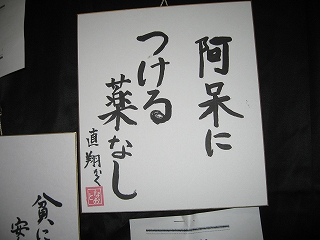 阿呆に
つける
薬なし
直翔かく
貧に
安